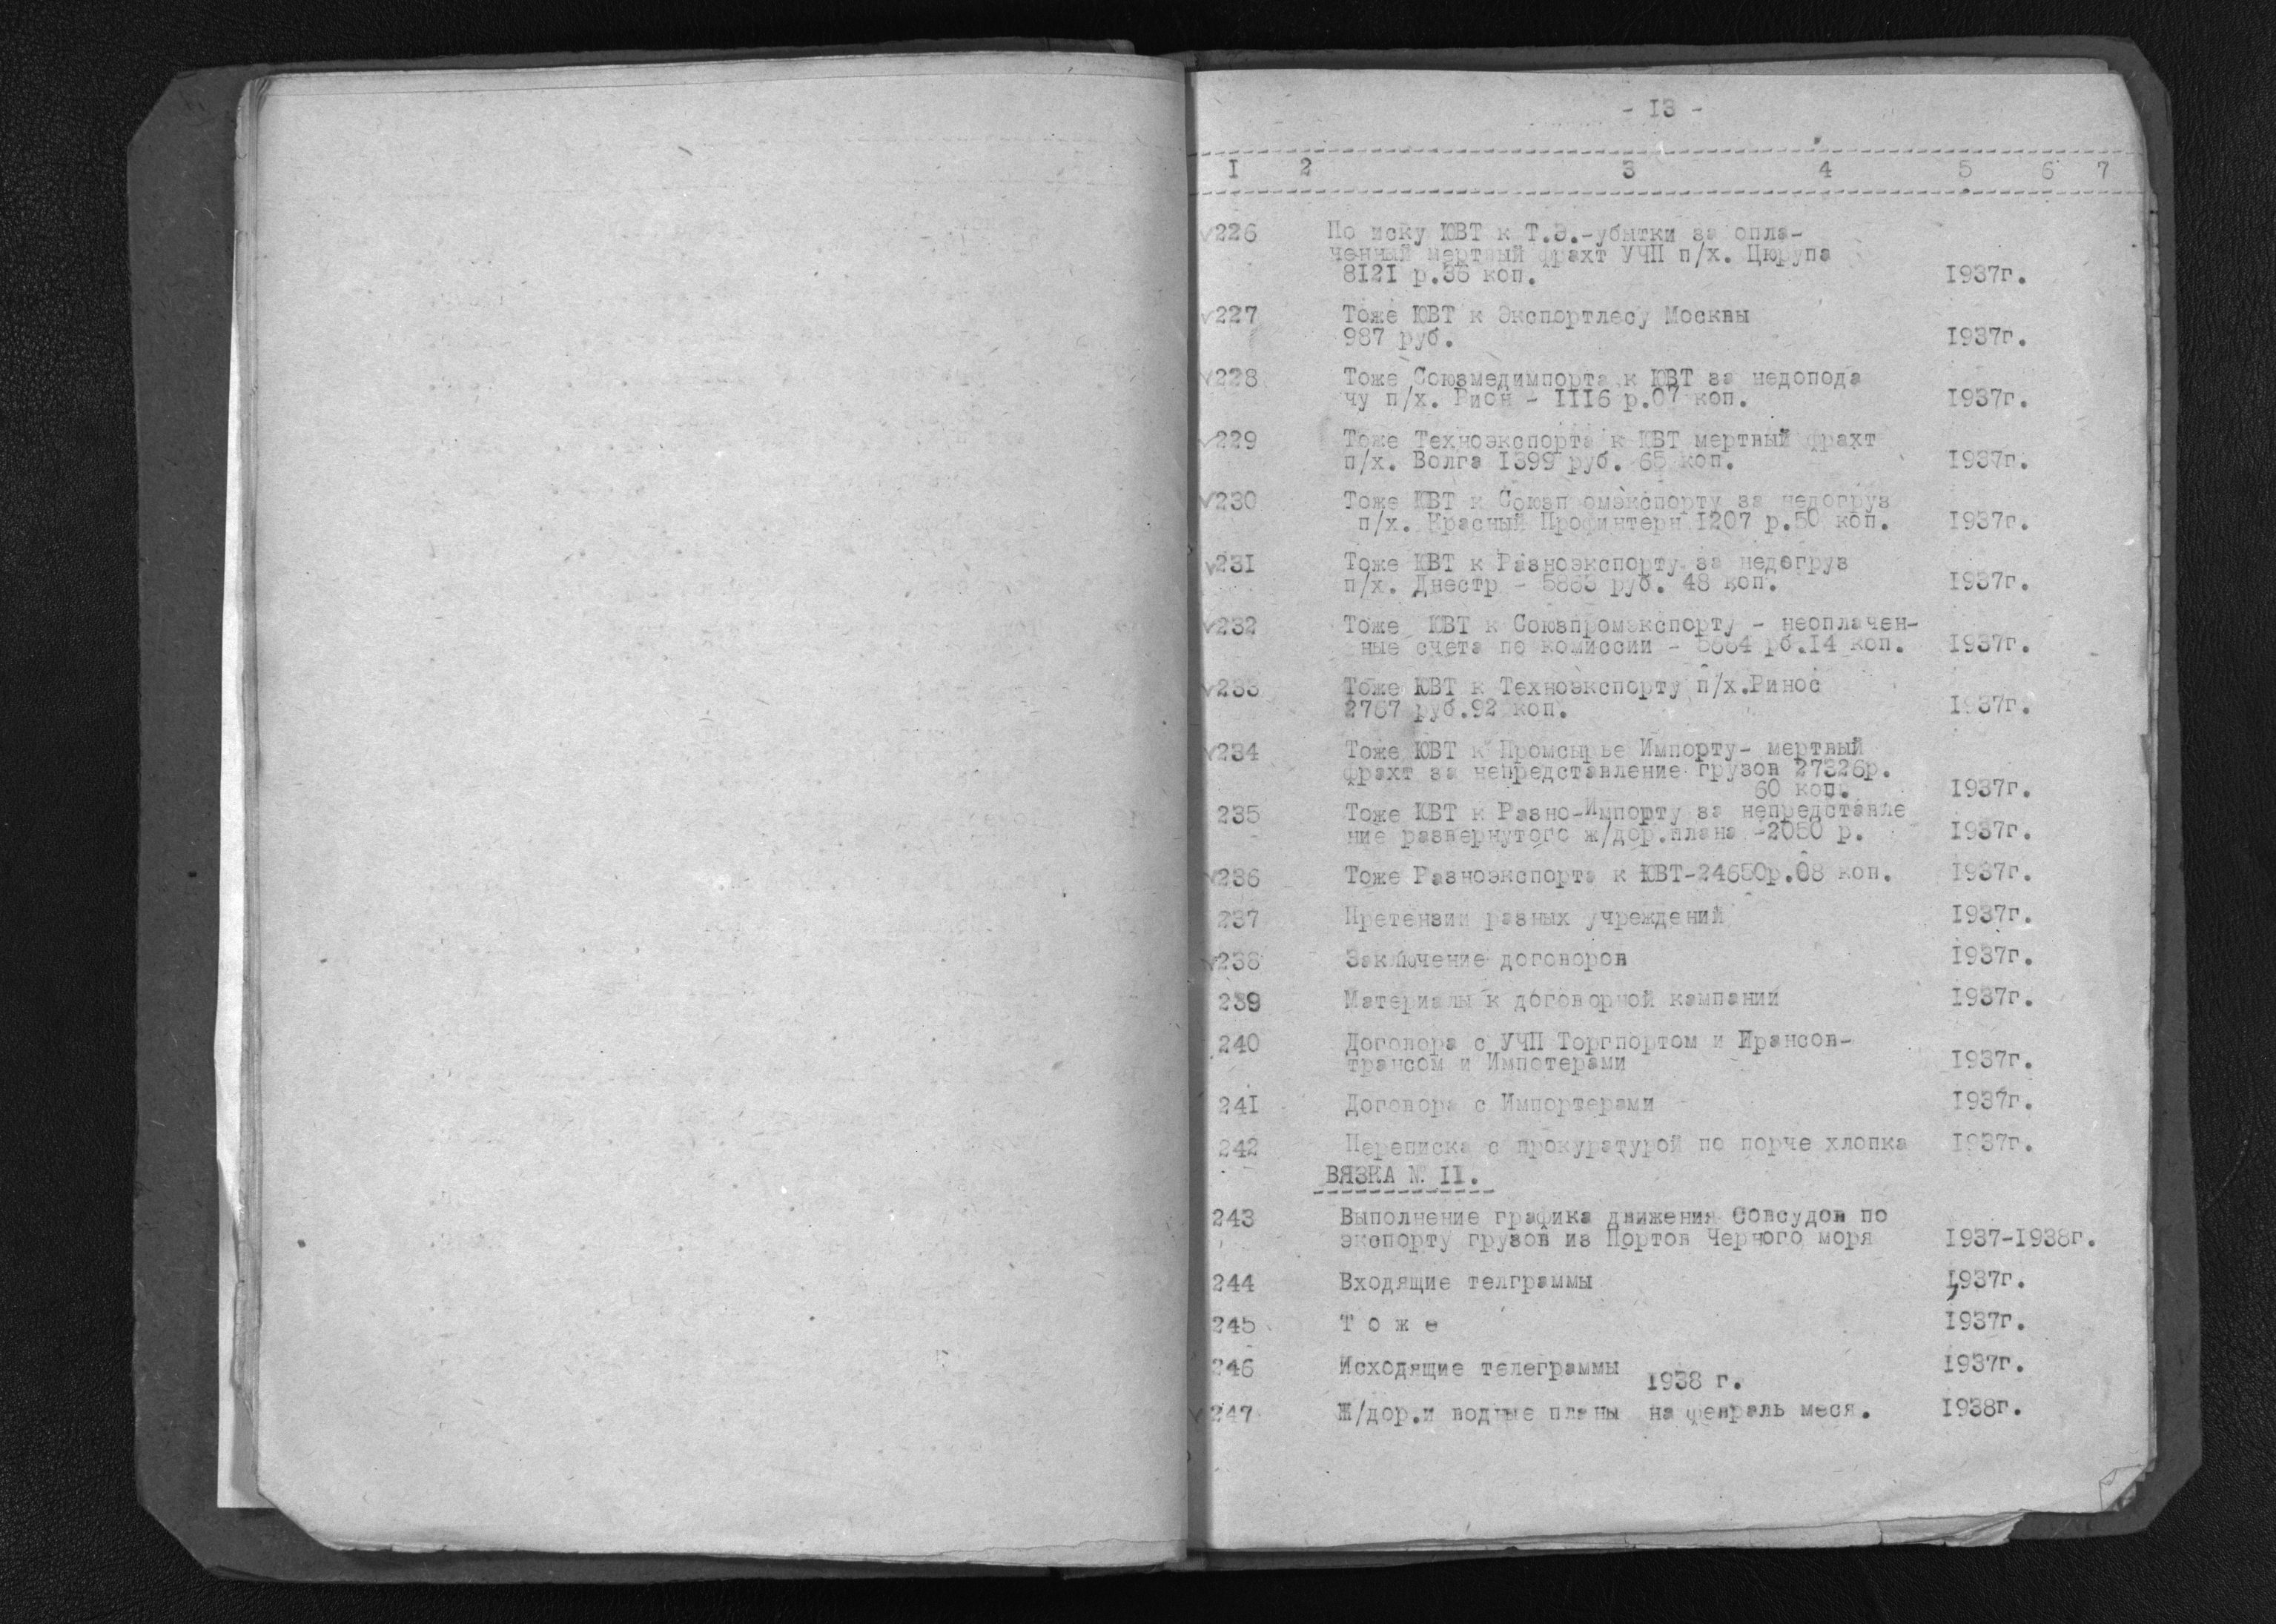 - I3 -
I 2 3 4 5 6 7
226 По иску ЮВТ к Т.Э.-убытки за опла-
ченный мертвый фрахт УЧП п/х. Цюрупа
8I2I р.36 коп. I937г.
227 Тоже ЮВТ к Экспортлесу Москвы
987 руб. I937г.
228 Тоже Союзмедимпорта к ЮВТ за недопода
чу п/х. Рион - III6 р.07 коп. I937г.
229 Тоже Техноэкспорта к ЮВТ мертвый фрахт
п/х. Волга I399 руб. 65 коп. I937г.
230 Тоже ЮВТ к Союзп омэкспорту за недогруз
п/х. Красный Профинтерн I207 р.50 коп. I937г.
23I Тоже ЮВТ к Разноэкспорту за недогруз
п/х. Днестр - 5863 руб. 48 коп. I937г.
232 Тоже ЮВТ к Союзпромэкспорту - неоплачен-
ные счета по комиссии - 5664 рб.I4 коп. I937г.
233 Тоже ЮВТ к Техноэкспорту п/х.Ринос
2767 руб.92 коп. I937г.
234 Тоже ЮВТ к Промсырье Импорту- мертвый
фрахт за непредставление грузов 27326р.
60 коп. I937г.
235 Тоже ЮВТ к Разно-Импорту за непредставле
ние развернутого ж/дор.плана -2050 р. I937г.
236 Тоже Разноэкспорта к ЮВТ-24650р.08 коп. I937г.
237 Претензии разных учреждений I937г.
238 Заключение договоров I937г.
239 Материалы к договорной кампании I937г.
240 Договора с УЧП Торгпортом и Ирансов-
трансом и Импотерами I937г.
24I Договора с Импортерами I937г.
242 Переписка с прокуратурой по порче хлопка I937г.
ВЯЗКА № II.
243 Выполнение графика движения Совсудов по
экспорту грузов из Портов Черного моря I937-I938г.
244 Входящие телграммы I937г.
245 Т о ж е I937г.
246 Исходящие телеграммы I937г.
I938 г.
247 Ж/дор.и водные планы на февраль меся. I938г.